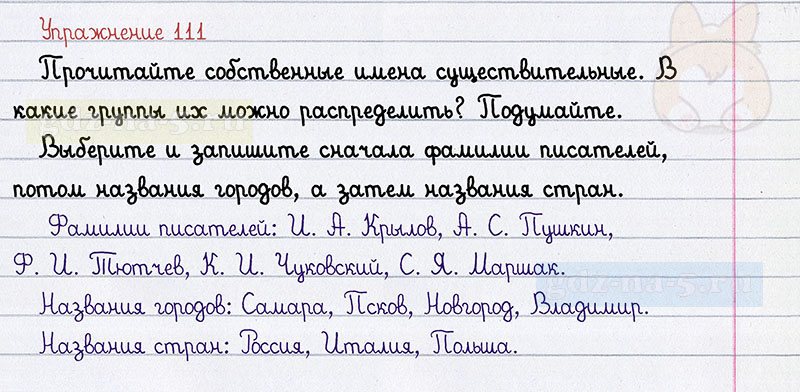 Упражнение 111
Прочитайте собственные имена существительные. В
какие группы их можно распределить? Подумайте.
Выберите и запишите сначала фамилии писателей,
потом названия городов, а затем названия стран.
Фамилии писателей: И. А. Крылов, А. С. Пушкин,
Ф. И. Тютчев, К. И. Чуковский, С. Я. Маршак.
gdz-na-5.ru
Названия городов: Самара, Псков, Новгород, Владимир.
Названия стран: Россия, Италия, Польша.